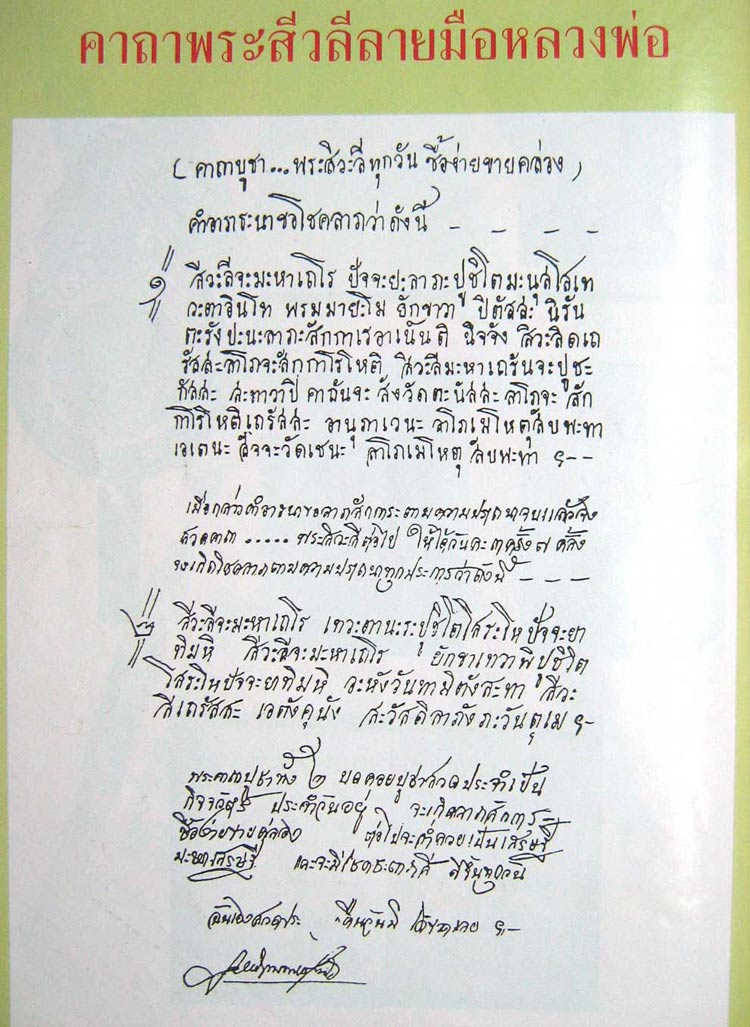 คาถาพระสีวลีลายมือหลวงพ่อ
(คาถาบูชา...พระสีวะลีทุกวัน ซื้อง่ายขายคล่อง)
คำอาราธนาขอโชคลาภว่าดังนี้ - - - -
๑ สีวะลีจะมะหาเถโร ปัจจะยะลาภะปูชิโตมะนุสโสเท
วะตาอินโท พรมมายะโม ยักขาวา ปิตัสสะ นิรัน
ตะรังปะนะลาภะสักกาเรอาเน็นติ นิจจัง สิวะลิดเถ
รัสสะลาโภจะสักกาโรโหติ สิวะลีมะหาเถรันจะปูชะ
กัสสะ สะทาวาปิ คาถันจะ สังวัดตะนัสสะ ลาโภจะ สัก
กาโรโหติเถรัสสะ อานุภาเวนะ ลาโภเมโหตุสับพะทา
เอเตนะ สัจจะวัดเชนะ ลาโภเมโหตุ สับพะทา ฯ--
เมื่อกล่าวคำอาราธนาขอลาภสักการะตามความปรารถนาจบแล้วจึง
สวดคาถา ..... พระสีวะลีต่อไป ให้ได้วันละ ๓ ครั้ง ๗ ครั้ง
จะเกิดโชคลาภตามความปรารถนาทุกประการว่าดังนี้ - - - -
๒ สีวะลีจะมะหาเถโร เทวะตานะระปูชิโตโสระโหปัจจะยา
ทิมหิ สีวะลีจะมะหาเถโร ยักขาเทวาพิปูชิโต
โสระโหปัจจะยาทิมหิ อะหังวันทามิตังสะทา สีวะ
ลีเถรัสสะ เอตังคุนัง สะวัสดิลาภังภะวันตุเม ฯ-
พระคาถาบูชาทั้ง ๒ บท คอยบูชาสวดประจำเป็น
กิจจวัตร ประจำวันอยู่ จะเกิดลาภสักการะ
ซื้อง่ายขายคล่อง ต่อไปจะร่ำรวยเป็นเศรษฐี
มะหาเศรษฐี และจะมีโชคชะตาดี ทุกวัน